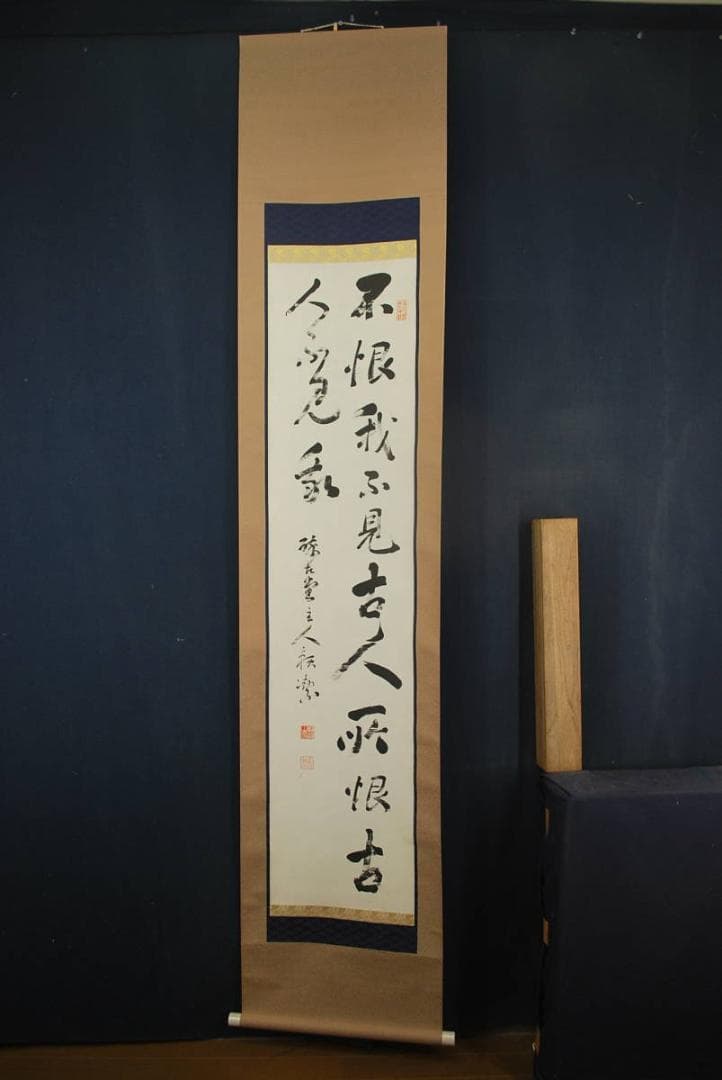 不恨我不見古人所恨古
人不見我
古堂主人